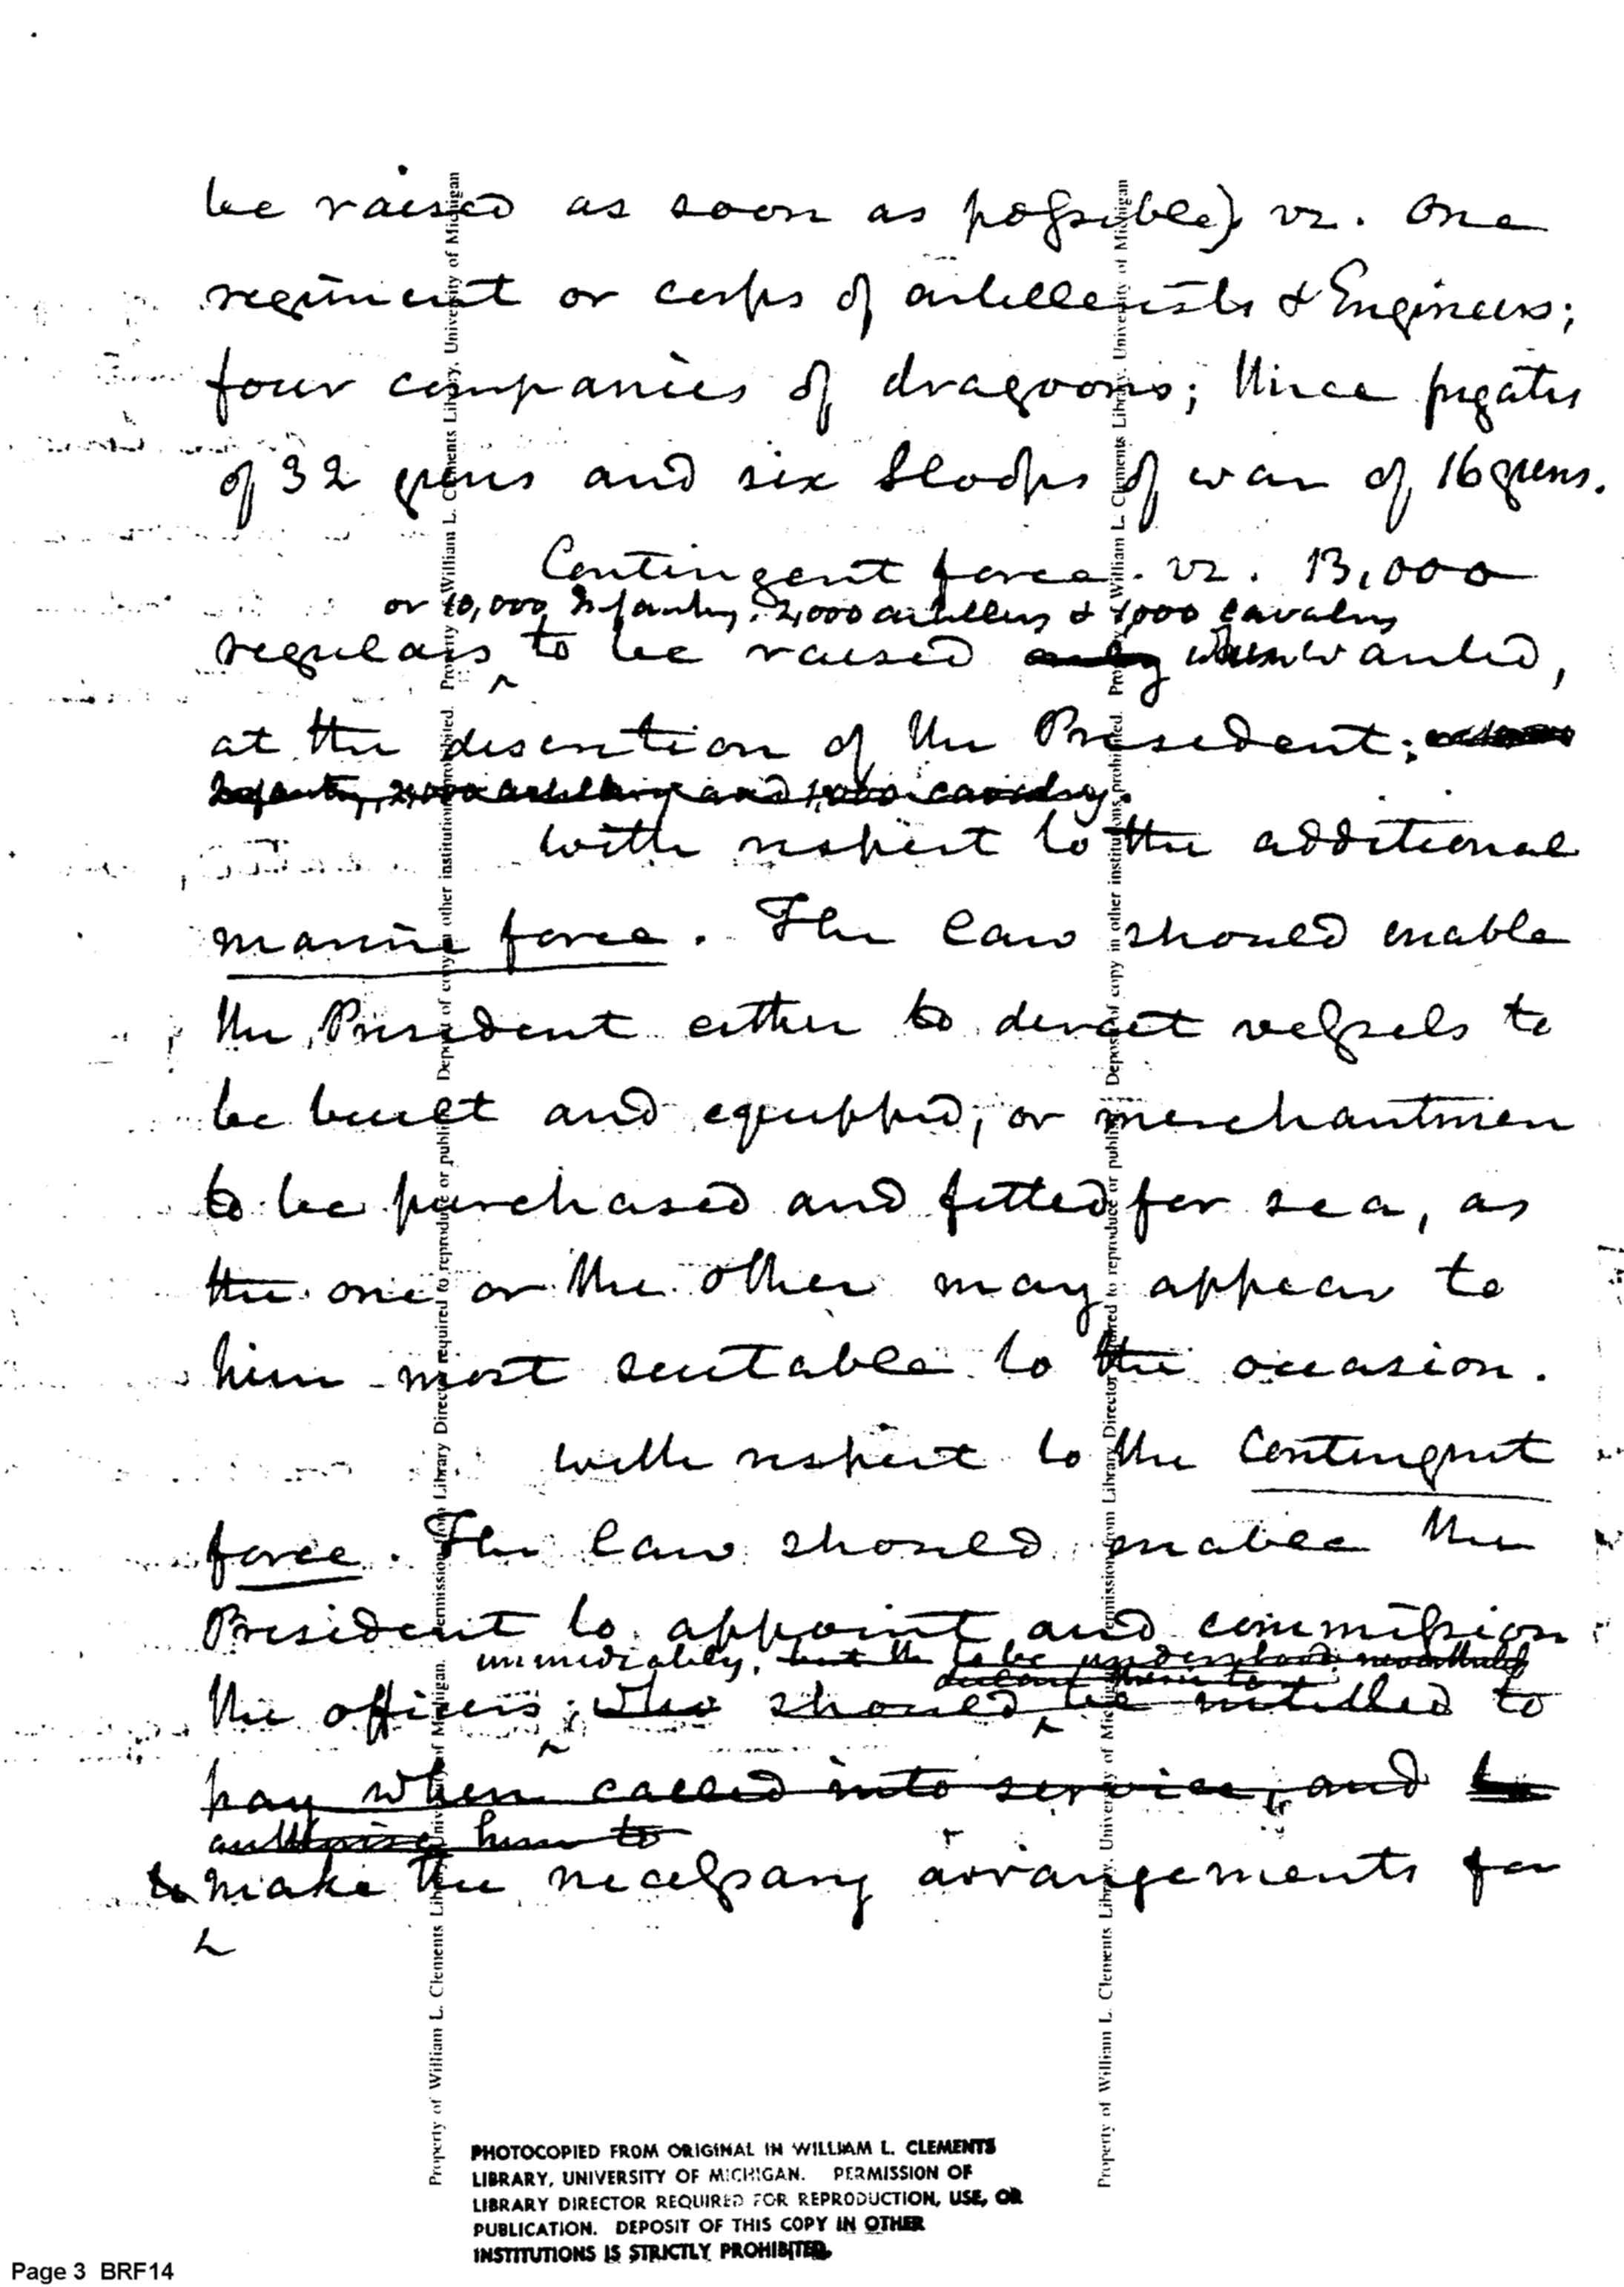 be raised as soon as possible) vz. One
regiment or corps of artillerists & Engineers;
four companies of dragoons; three frigates
of 32 guns and six Sloops of war of 16 guns.
Contingent force. vz. 13,000
or 10,000 Infantry, 2,000 artillery & 1,000 cavalry
regulars to be raised only when wanted,
at the discretion of the President;
Infantry, 2,000 artillery and 1,000 cavalry.
with respect to the additional
marine force. The law should enable
the President either to direct vessels to
be built and equipped, or merchantmen
to be purchased and fitted for sea, as
the one or the other may appear to
him most suitable to the occasion.
with respect to the Contingent
force. The law should enable the
President to appoint and commission
immediately, but the to be understood
the officers; who should be entitled to
pay when called into service, and to
authorise him to
to make the necessary arrangements for
PHOTOCOPIED FROM ORIGINAL IN WILLIAM L. CLEMENTS
LIBRARY, UNIVERSITY OF MICHIGAN. PERMISSION OF
LIBRARY DIRECTOR REQUIRED FOR REPRODUCTION, USE, OR
PUBLICATION. DEPOSIT OF THIS COPY IN OTHER
INSTITUTIONS IS STRICTLY PROHIBITED.
Property of William L. Clements Library, University of Michigan. Permission from Library Director required to reproduce or publish. Deposit of copy in other institutions prohibited. Property of William L. Clements Library, University of Michigan
Property of William L. Clements Library, University of Michigan. Permission from Library Director required to reproduce or publish. Deposit of copy in other institutions prohibited. Property of William L. Clements Library, University of Michigan
Page 3 BRF14